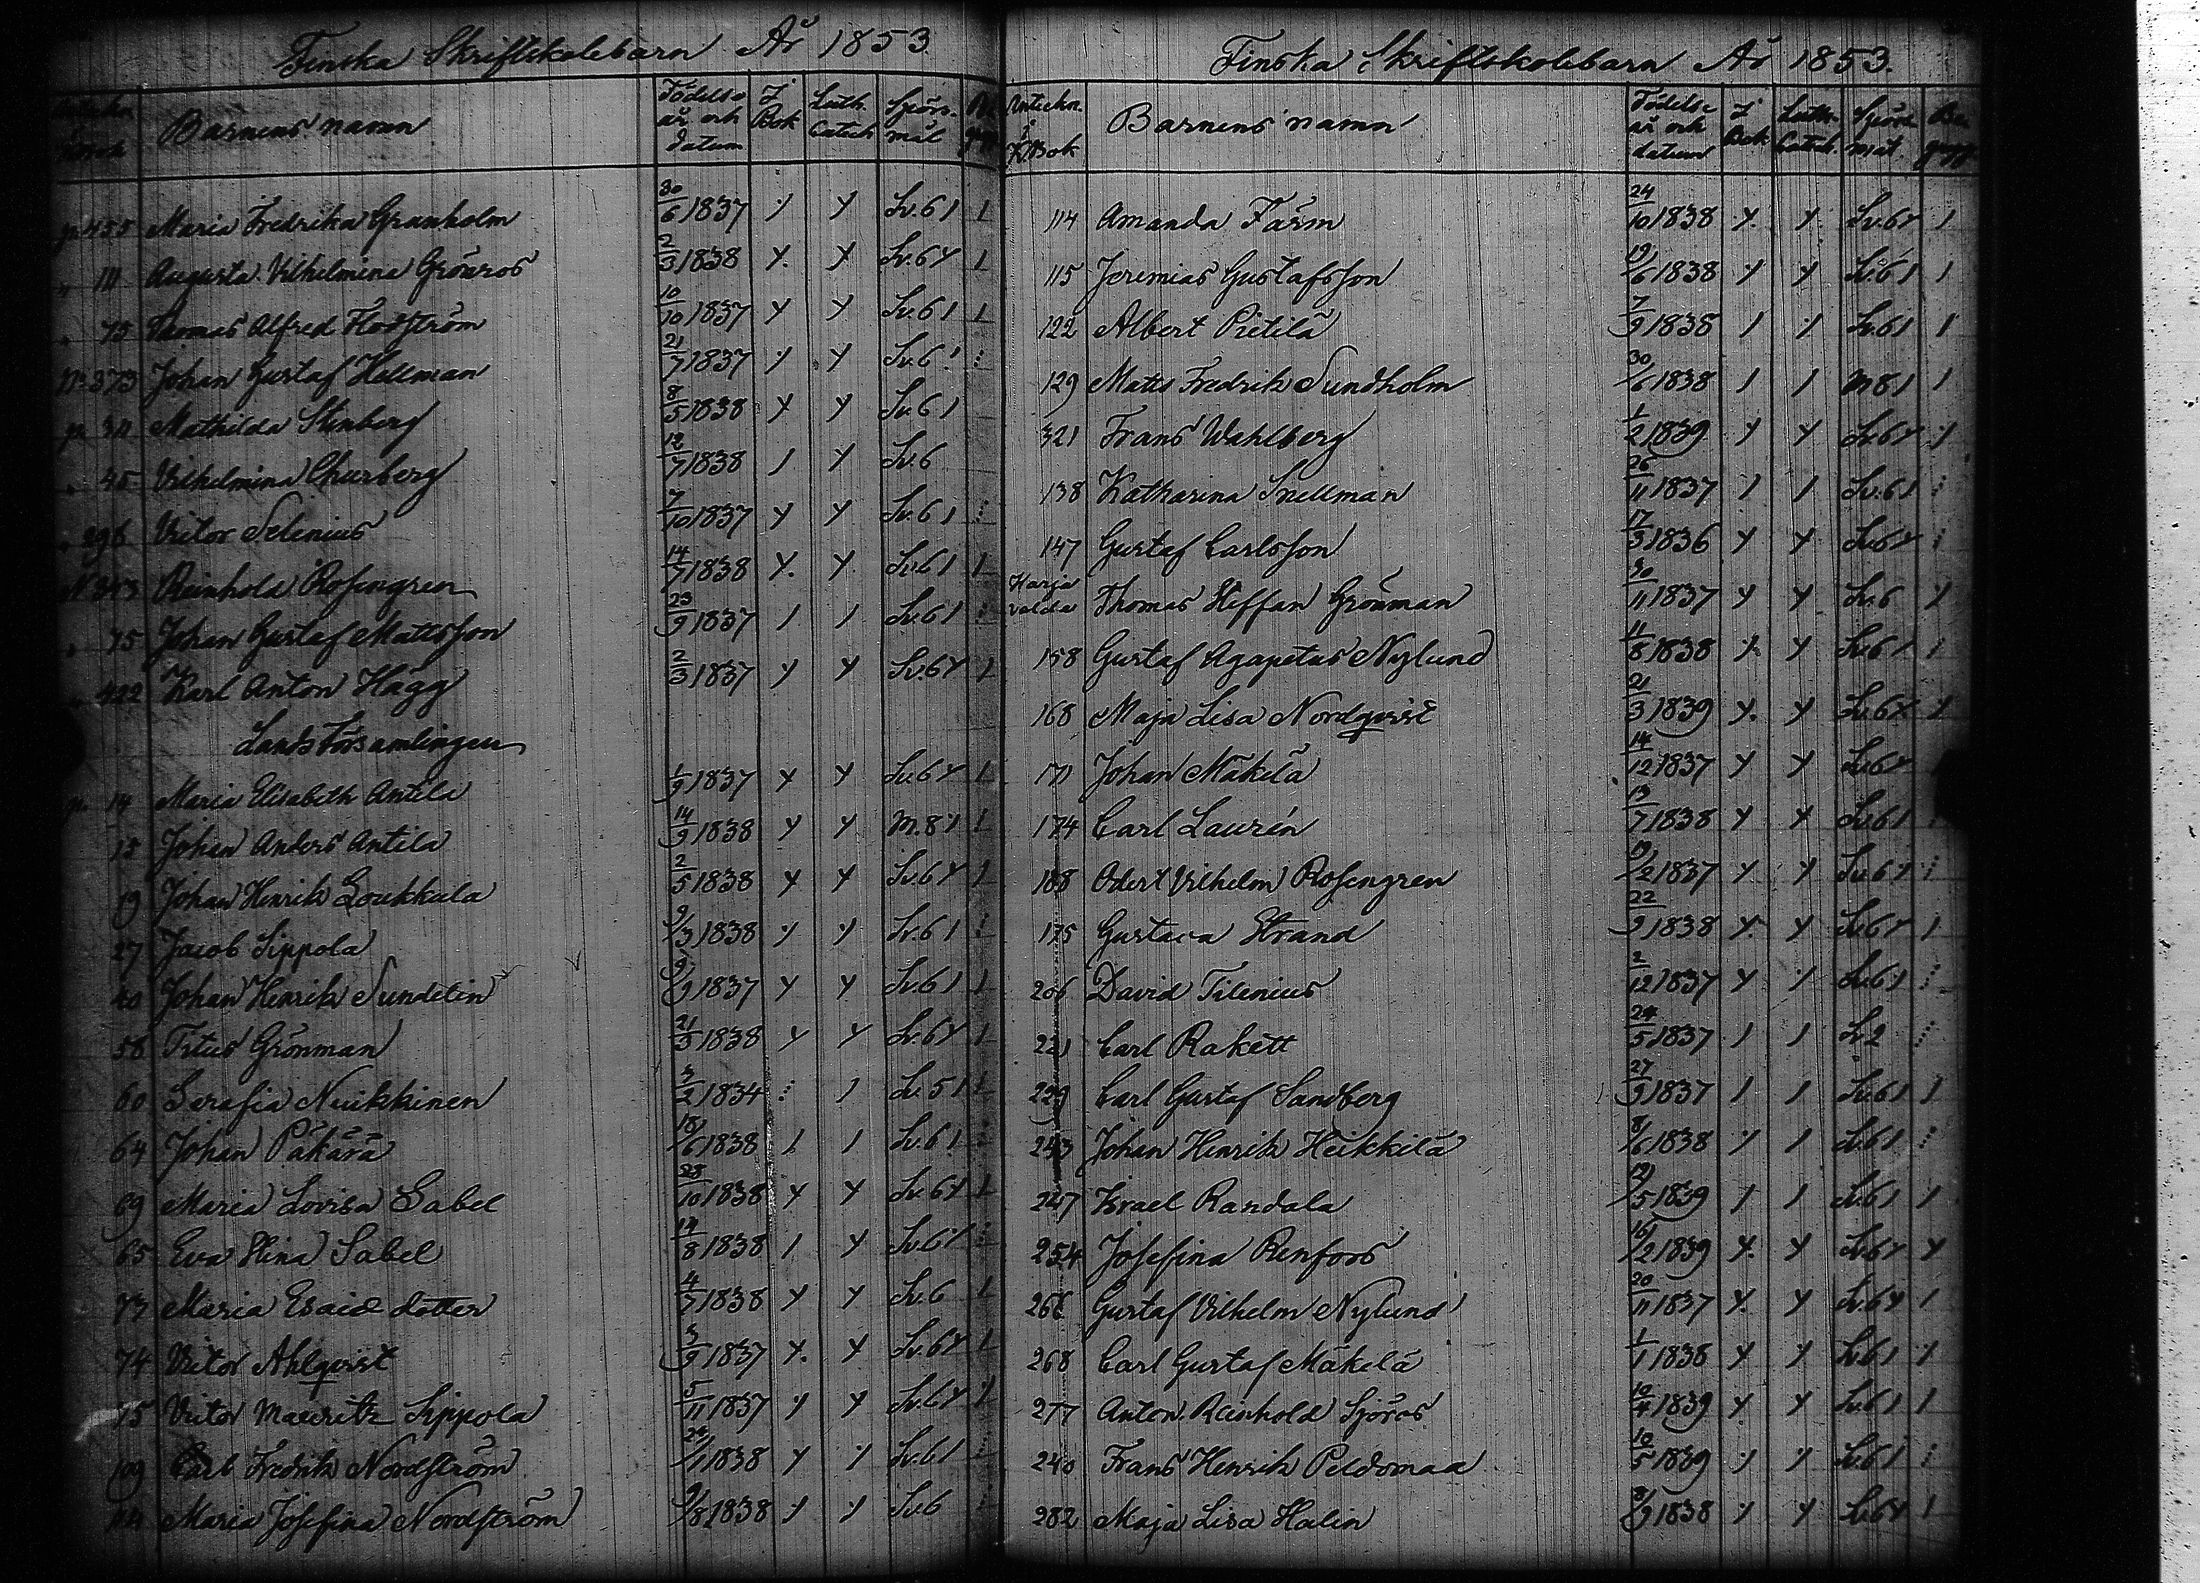 Finska Skriftskolebarn År 1853
Barnens namn Födelse år och datum I Bok Luth. Catech Spörsmål
p. 455 Maria Fredrika Granholm 30/6 1837 Sv. 6
" 111 Augusta Vilhelmina Grönros 2/3 1838 Sv. 6
" 75 Thomas Alfred Flodström 10/10 1837 Sv. 6
N. 373 Johan Gustaf Hellman 21/7 1837 Sv. 6
p. 34 Mathilda Stenberg 8/5 1838 Sv. 6
" 45 Vilhelmina Churberg 12/7 1838 Sv. 6
" 296 Victor Selenius 7/10 1837 Sv. 6
N 343 Reinhold Rosengren 14/7 1838 Sv. 6
" 75 Johan Gustaf Mattsson 23/9 1837 Sv. 6
" 422 Karl Anton Hägg 2/3 1837 Sv. 6
Landsförsamlingen
p. 14 Maria Elisabeth Antila 1/9 1837 Sv. 6
15 Johan Anders Antila 14/9 1838 M. 8
19 Johan Henrik Loukkula 2/5 1838 Sv. 6
27 Jacob Sippola 9/3 1838 Sv. 6
40 Johan Henrik Sundelin 9/9 1837 Sv. 6
58 Titus Grönman 21/3 1838 Sv. 6
60 Serafia Nuikkinen 3/2 1834 Sv. 5
64 Johan Päkärä 18/6 1838 Sv. 6
69 Maria Lovisa Sabel 28/10 1838 Sv. 6
65 Eva Stina Sabel 14/8 1838 Sv. 6
73 Maria Esaiedotter 4/7 1838 Sv. 6
74 Victor Ahlqvist 3/9 1837 Sv. 6
75 Victor Mauritz Sippola 5/11 1837 Sv. 6
109 Carl Fredrik Nordström 1838 Sv. 6
Maria Josefina Nordström 9/8 1838 Sv. 6
Finska Skriftskolebarn År 1853.
Anteckn. i K.Bok Barnens namn Födelse år och datum I Bok Luth. Catech. Spörsmål
114 Amanda Färm 24/10 1838 Sv. 6
115 Jeremias Gustafsson 19/6 1838 Sv. 6
122 Albert Pietilä 7/9 1838 Sv. 6
129 Matts Fredrik Sundholm 30/6 1838 M 8
321 Frans Wahlberg 1/2 1839 Sv. 6
138 Katharina Snellman 26/11 1837 Sv. 6
147 Gustaf Carlsson 17/3 1836 Sv. 6
Karja
valda Thomas Steffan Grönman 30/11 1837 Sv. 6
158 Gustaf Agapetus Nylund 11/8 1838 Sv. 6
168 Maja Lisa Nordqvist 21/3 1839 Sv. 6
171 Johan Mäkelä 14/12 1837 Sv. 6
174 Carl Laurén 13/7 1838 Sv. 6
188 Odert Vilhelm Rosengren 19/2 1837 Sv. 6
175 Gustava Strand 22/9 1838 Sv. 6
206 David Tilenius 2/12 1837 Sv. 6
221 Carl Rakett 24/5 1837 Sv 2
229 Carl Gustaf Sandberg 27/9 1837 Sv. 6
243 Johan Henrik Heikkilä 8/6 1838 Sv. 6
247 Israel Randala 19/5 1839 Sv. 6
254 Josefina Renfors 16/2 1839 Sv. 6
266 Gustaf Vilhelm Nylund 20/11 1837 Sv. 6
268 Carl Gustaf Mäkelä 1/1 1838 Sv. 6
277 Anton Reinhold Sjöros 10/4 1839 Sv. 6
240 Frans Henrik Peldomaa 10/5 1839 Sv. 6
282 Maja Lisa Halin 8/9 1838 Sv. 6